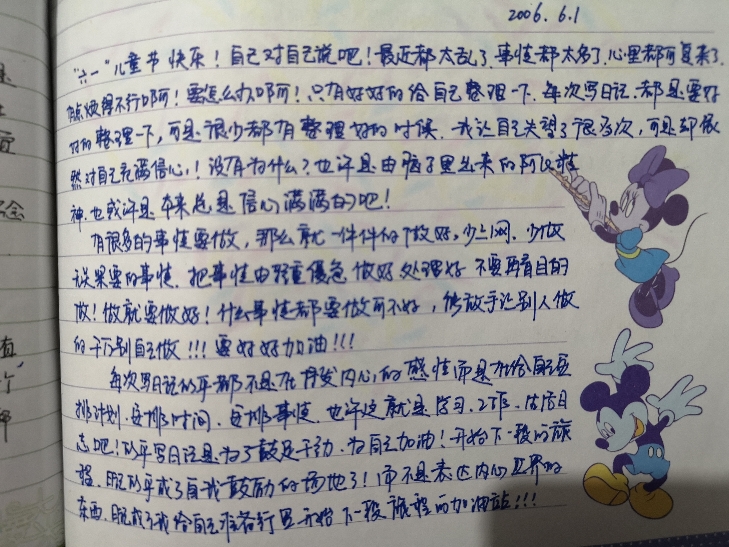 2006.6.1
"六一"儿童节快乐！自己对自己说吧！最近都太乱了，事情都太多了，心里都可复杂了，
有点烦得不行啊可！要怎么办啊可！只有好好的给自己整理一下，每次写日记，都是要好
好的整理一下，可是很少都有整理好的时候，我让自己失望了很多次，可是却依
然对自己充满信心！没有为什么？也许是由脑子里出来的阿Q精
神，也或许是本来总是信心满满的吧！
有很多的事情要做，那么就一件件的做好，少上网、少做
没果要的事情，把事情由轻重优急做好处理好不要再盲目的
做！做就要做好！什么事情都要做可不好，能放手让别人做
的千万别自己做！！！要好好加油！！！
每次写日记似乎都不是在抒发内心的感情而是在给自己安
排计划，安排时间，安排事情，也许这就是学习、工作、生活日
志吧！似乎写日记是为了鼓足干劲，为自己加油！开始下一段的旅
程，日记似乎成了自我鼓励的场地了！而不是表达内心世界的
东西，日记成了我给自己准备行囊开始下一段旅程的加油站！！！